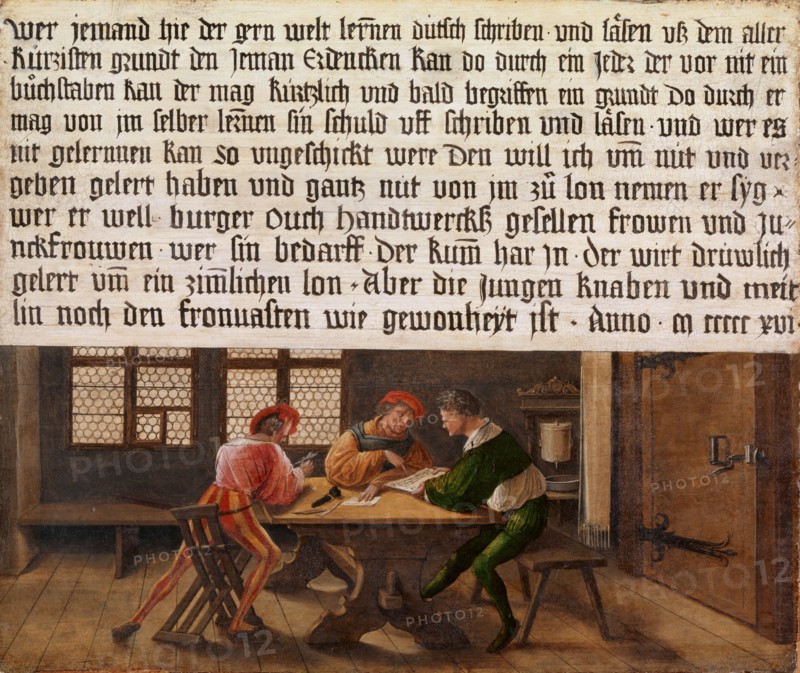 wer jemand hie der gern welt lern̄en dütsch schriben · vnd läsen vß dem aller
kürzisten grundt den Jeman Erdencken kan do durch ein Jeder der vor nit ein
bůchstaben kan der mag kürtzlich vnd bald begriffen ein grundt do durch er
mag von jm selber lern̄en sin schuld vff schriben vnd läsen · vnd wer es
nit gelernnen kan so vngeschickt were Den will ich vm̄ nüt vnd ver⸗
geben gelert haben vnd gantz nüt von jm zů lon nemen er syg ·
wer er well · burger Ouch handtwercks gesellen frowen vnd Ju⸗
nckfrouwen · wer sin bedarff · Der kum̄ har jn · der wirt drüwlich
gelert vm̄ ein zim̄lichen lon · Aber die Jungen knaben vnd meit
lin noch den fronuasten wie gewonheyt jst · Anno · m ccccc xvi
PHOTO12
PHOTO12
PHOTO12
PHOTO12
PHOTO12
PHOTO12
PHOTO12
PHOTO12